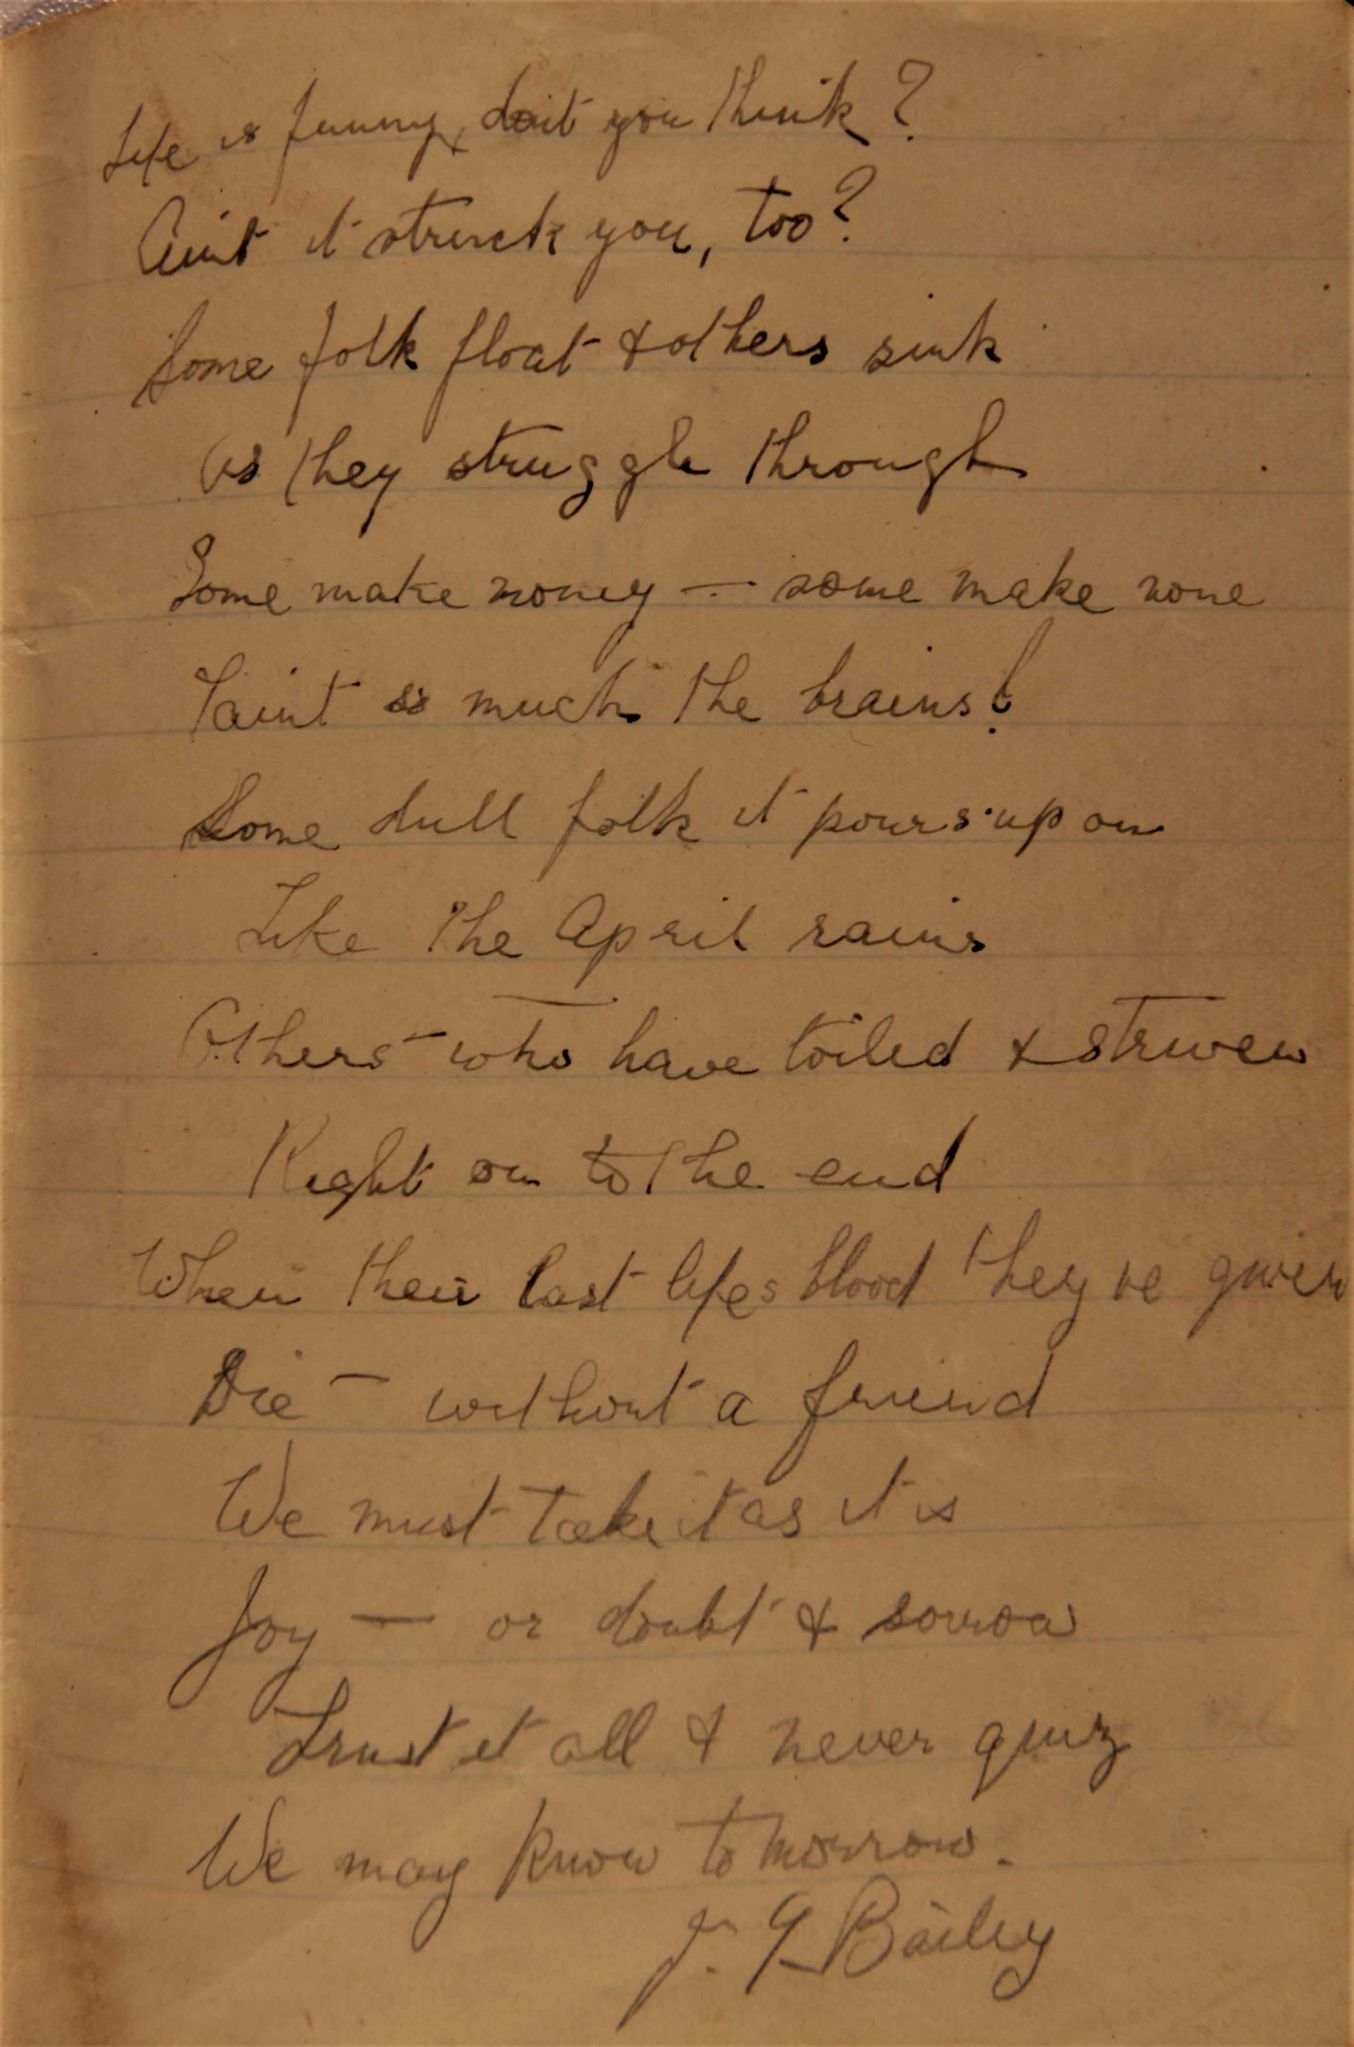 Life is funny, dont you think?
Aint it struck you, too?
Some folk float & others sink
As they struggle through
Some make money — some make none
Taint so much the brains!
Some dull folk it pours upon
Like the April rains
Others who have toiled & striven
Right on to the end
When their last lifes blood they've given
Die — without a friend
We must take it as it is
Joy — or doubt & sorrow
Trust it all & never quiz
We may know tomorrow.
J. G Bailey